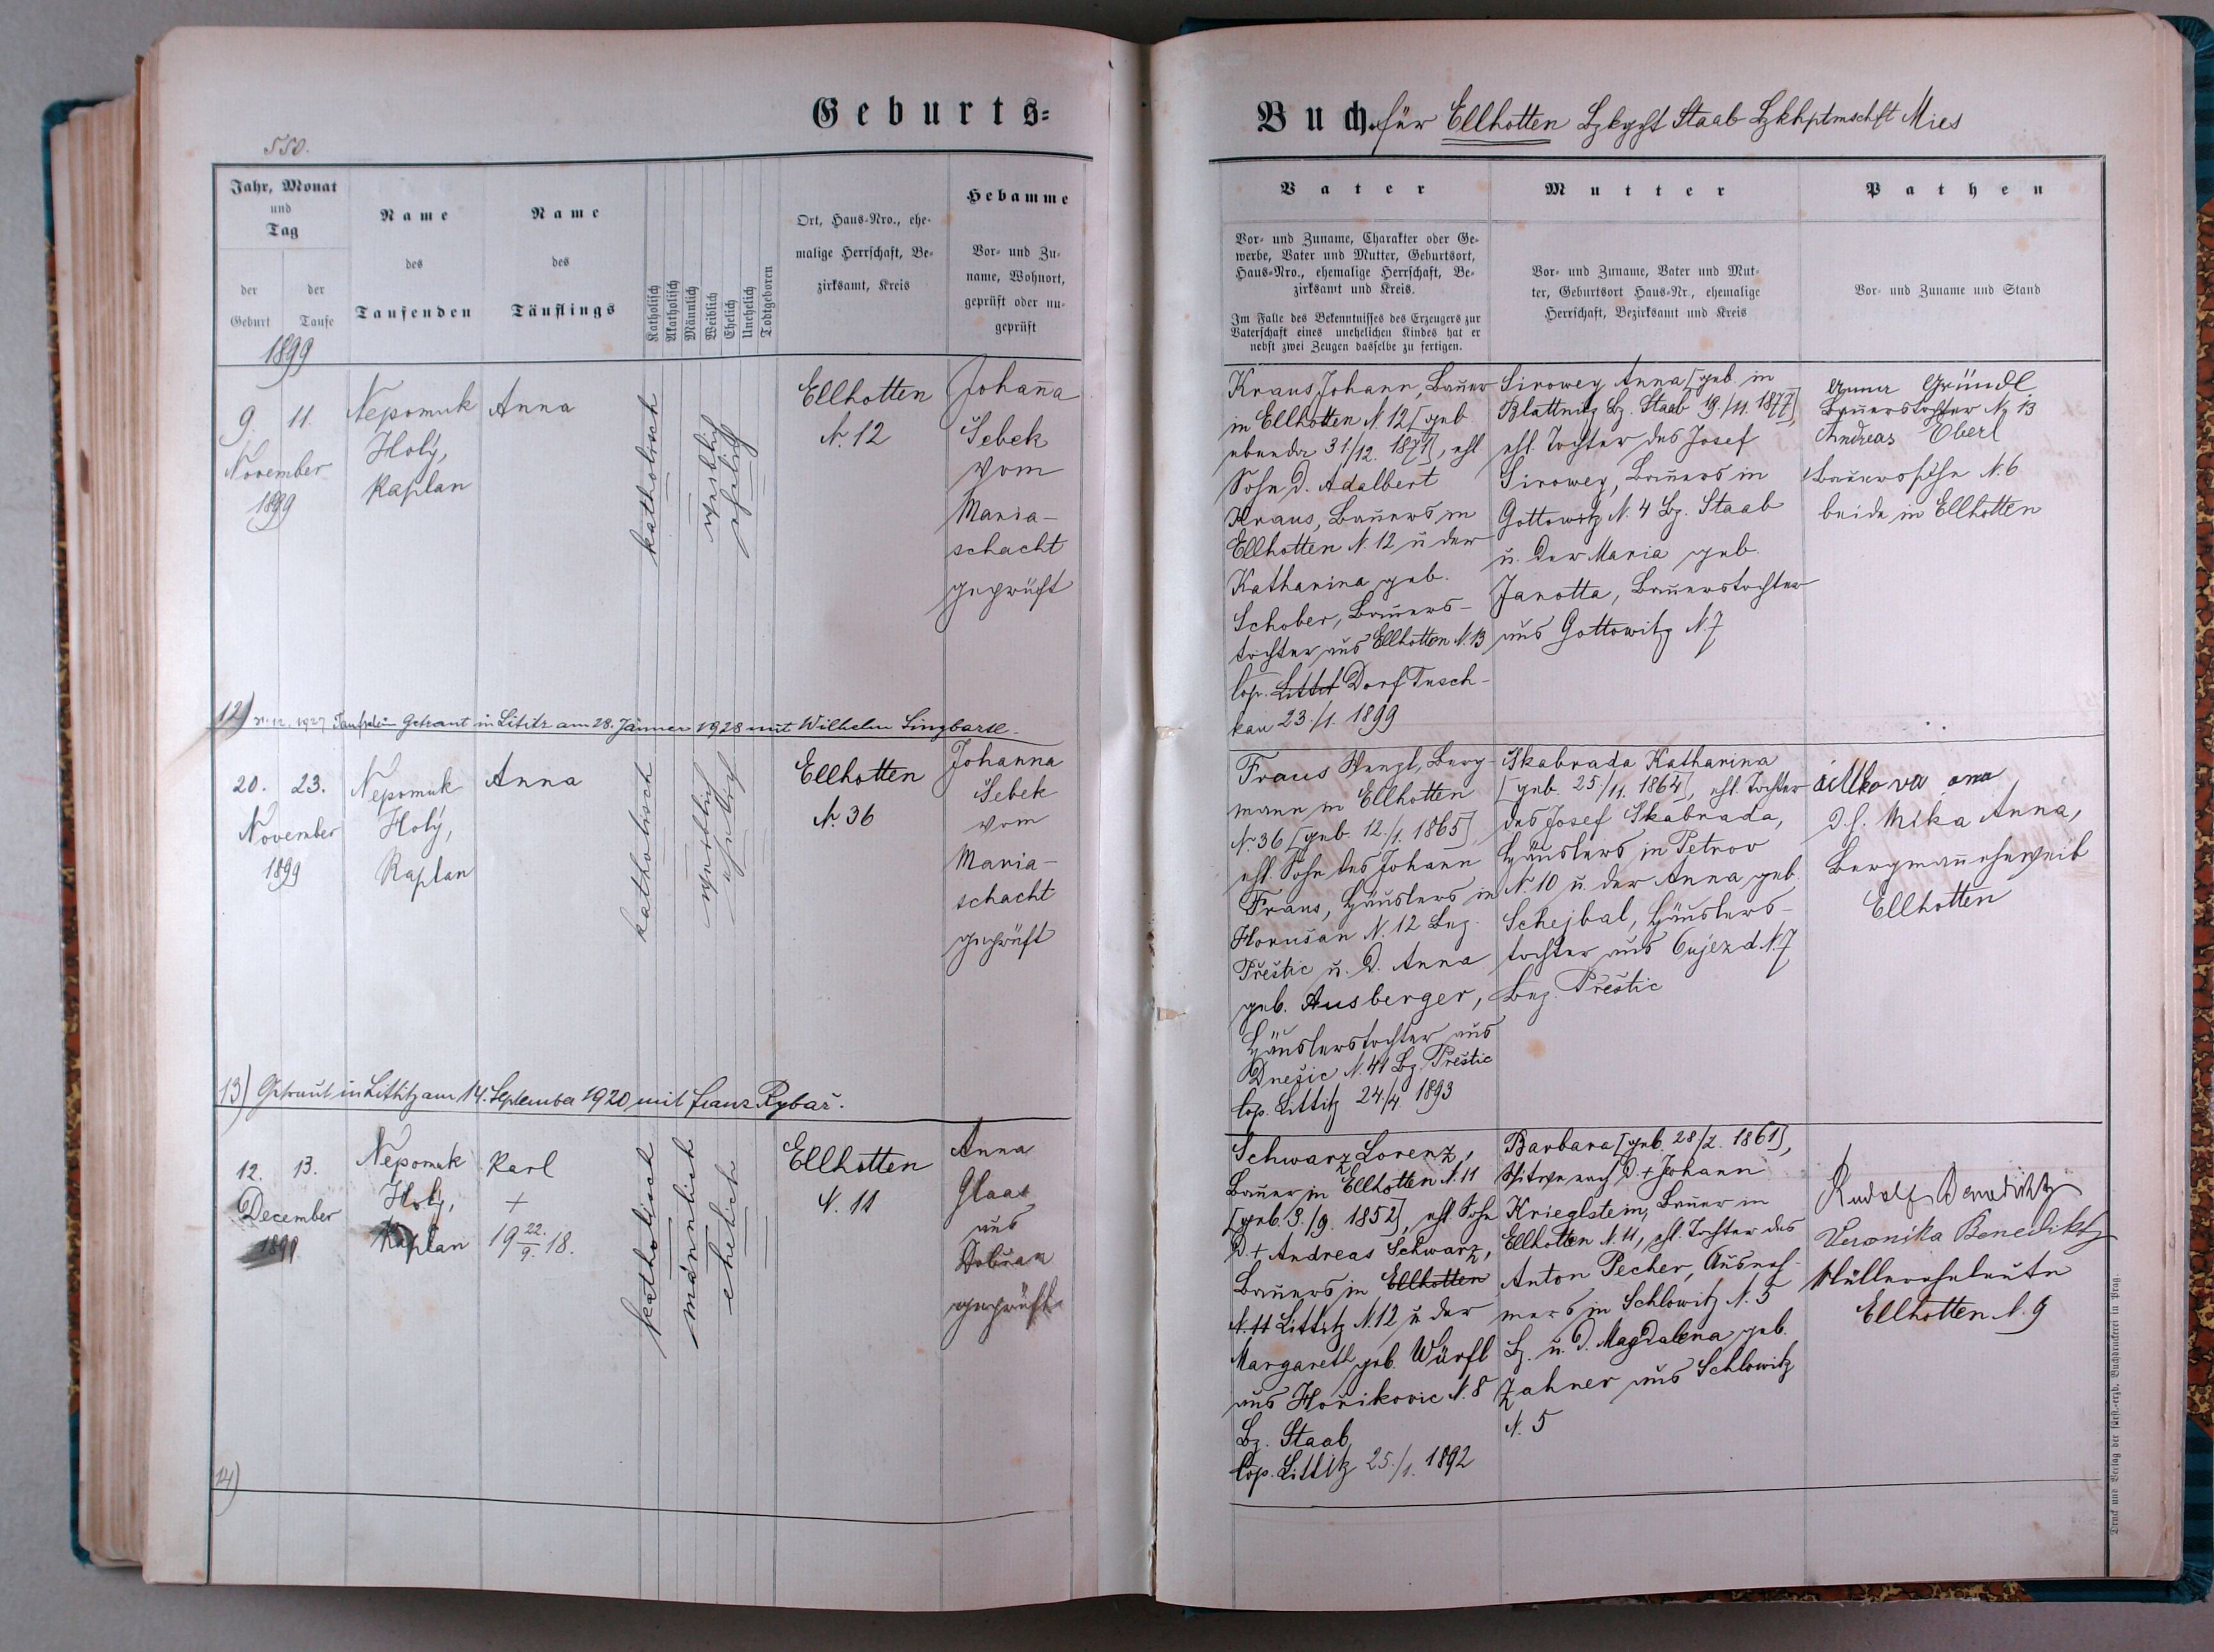 550.
Geburts=
Jahr, Monat
und
Tag
der
Geburt
der
Taufe
Name
des
Taufenden
Name
des
Täuflings
Katholisch
Akatholisch
Männlich
Weiblich
Ehelich
Unehelich
Todtgeboren
Ort, Haus-Nro., ehe-
malige Herrschaft, Be-
zirksamt, Kreis
Hebamme
Vor- und Zu-
name, Wohnort,
geprüft oder un-
geprüft
1899
9. 11.
November
1899
Nepomuk
Holý,
Kaplan
Anna
katholisch
weiblich
ehelich
Ellhotten
N. 12
Johana
Šebek
vom
Maria-
schacht
geprüft
12) 31.12.1927 Taufschein Getraut in Lititz am 28. Jänner 1928 mit Wilhelm Singbartl.
20. 23.
November
1899
Nepomuk
Holý,
Kaplan
Anna
katholisch
weiblich
ehelich
Ellhotten
N. 36
Johanna
Šebek
vom
Maria-
schacht
geprüft
13) Getraut in Littitz am 14. September 1920 mit Franz Rybař.
12. 13.
December
1899
Nepomuk
Holý,
Kaplan
Karl
+
19 22./9. 18.
katholisch
männlich
ehelich
Ellhotten
N. 11
Anna
Glaas
aus
Dobřan
geprüft
14)
Buch für Ellhotten Bzkgcht Staab Bzkhptmschft Mies
Vater
Vor- und Zuname, Charakter oder Ge-
werbe, Vater und Mutter, Geburtsort,
Haus-Nro., ehemalige Herrschaft, Be-
zirksamt und Kreis.
Im Falle des Bekenntnisses des Erzeugers zur
Vaterschaft eines unehelichen Kindes hat er
nebst zwei Zeugen dasselbe zu fertigen.
Mutter
Vor- und Zuname, Vater und Mut-
ter, Geburtsort Haus-Nr., ehemalige
Herrschaft, Bezirksamt und Kreis
Pathen
Vor- und Zuname und Stand
Kraus Johann, Bauer
in Ellhotten N. 12 [geb.
ebenda 31/12. 1871], ehl
Sohn d. Adalbert
Kraus, Bauers in
Ellhotten N. 12 u der
Katharina geb.
Schober, Bauers-
tochter aus Ellhotten N. 13
Cop. Littit Dorf Tusch-
kau 23./1. 1899
Sirowey Anna [geb in
Blattnitz Bz. Staab 19./11. 1877],
ehl. Tochter des Josef
Sirowey, Bauers in
Gottowitz N. 4 Bz. Staab
u. der Maria geb.
Janotta, Bauerstochter
aus Gottowitz N. 7
Anna Gründl
Bauerstochter No 13
Andreas Eberl
Bauerssohn N. 6
beide in Ellhotten
Fraus Wenzl, Berg-
mann in Ellhotten
N. 36 [geb. 12./1. 1865]
ehl. Sohn des Johann
Fraus, Häuslers in
Horušan N. 12 Bez.
Přeštic u. d. Anna
geb. Ausberger,
Häuslerstochter aus
Dnešic N. 41 Bz. Přeštic
Cop. Littitz 24./4. 1893
Skabrada Katharina
[geb. 25/11. 1864], ehl. Tochter
des Josef Skabrada,
Häuslers in Petrov
N. 10 u. der Anna geb.
Schejbal, Häuslers-
tochter aus Oujezd N. 7
Bez. Přeštic
d. h. Mika Anna,
Bergmannseheweib
Ellhotten
Schwarz Lorenz,
Bauer in Ellhotten N. 11
[geb. 3./9. 1852], ehl. Sohn
d + Andreas Schwarz,
Bauers in Ellhotten
N. 11 Littitz N. 12 u der
Margareth geb. Würfl
aus Hořikovic N. 8
Bz. Staab
Cop. Littitz 25./1. 1892
Barbara [geb. 28/2. 1861],
Witwe nach d + Johann
Krieglstein, Bauer in
Ellhotten N. 11, ehl. Tochter des
Anton Pecher, Ausneh-
mers in Schlowitz N. 5
Bz. u. d. Magdalena geb.
Zahner aus Schlowitz
N. 5
Rudolf Benedikt
Veronika Benedikt
Müllerseheleute
Ellhotten N. 9
Druck und Verlag der fürst.-erzb. Buchdruckerei in Prag.